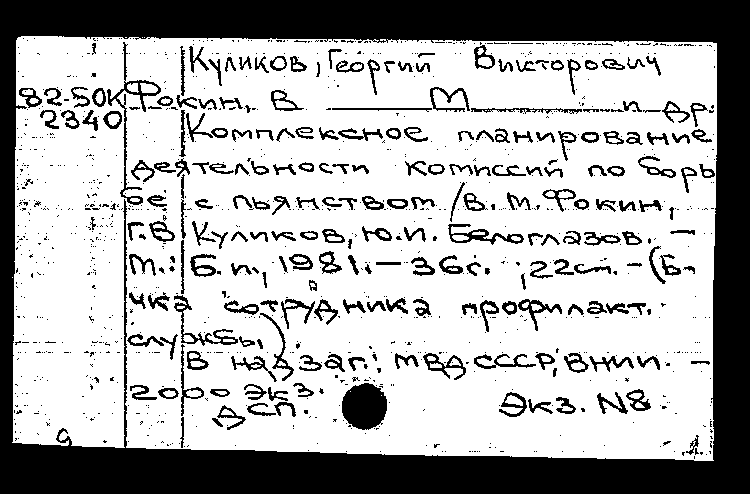 Куликов, Георгий Викторович
82-50К Фокин, В М и др.
2340
Комплексное планирование
деятельности комиссий по борь
бе с пьянством / В. М. Фокин,
Г. В. Куликов, Ю. И. Белоглазов. —
М.: Б. и., 1981. — 36 с. ; 22 см. — (Б-
чка сотрудника профилакт.
службы)
В надзаг.: МВД СССР, ВНИИ. —
2000 экз.
ДСП. Экз. N8.
9 1.